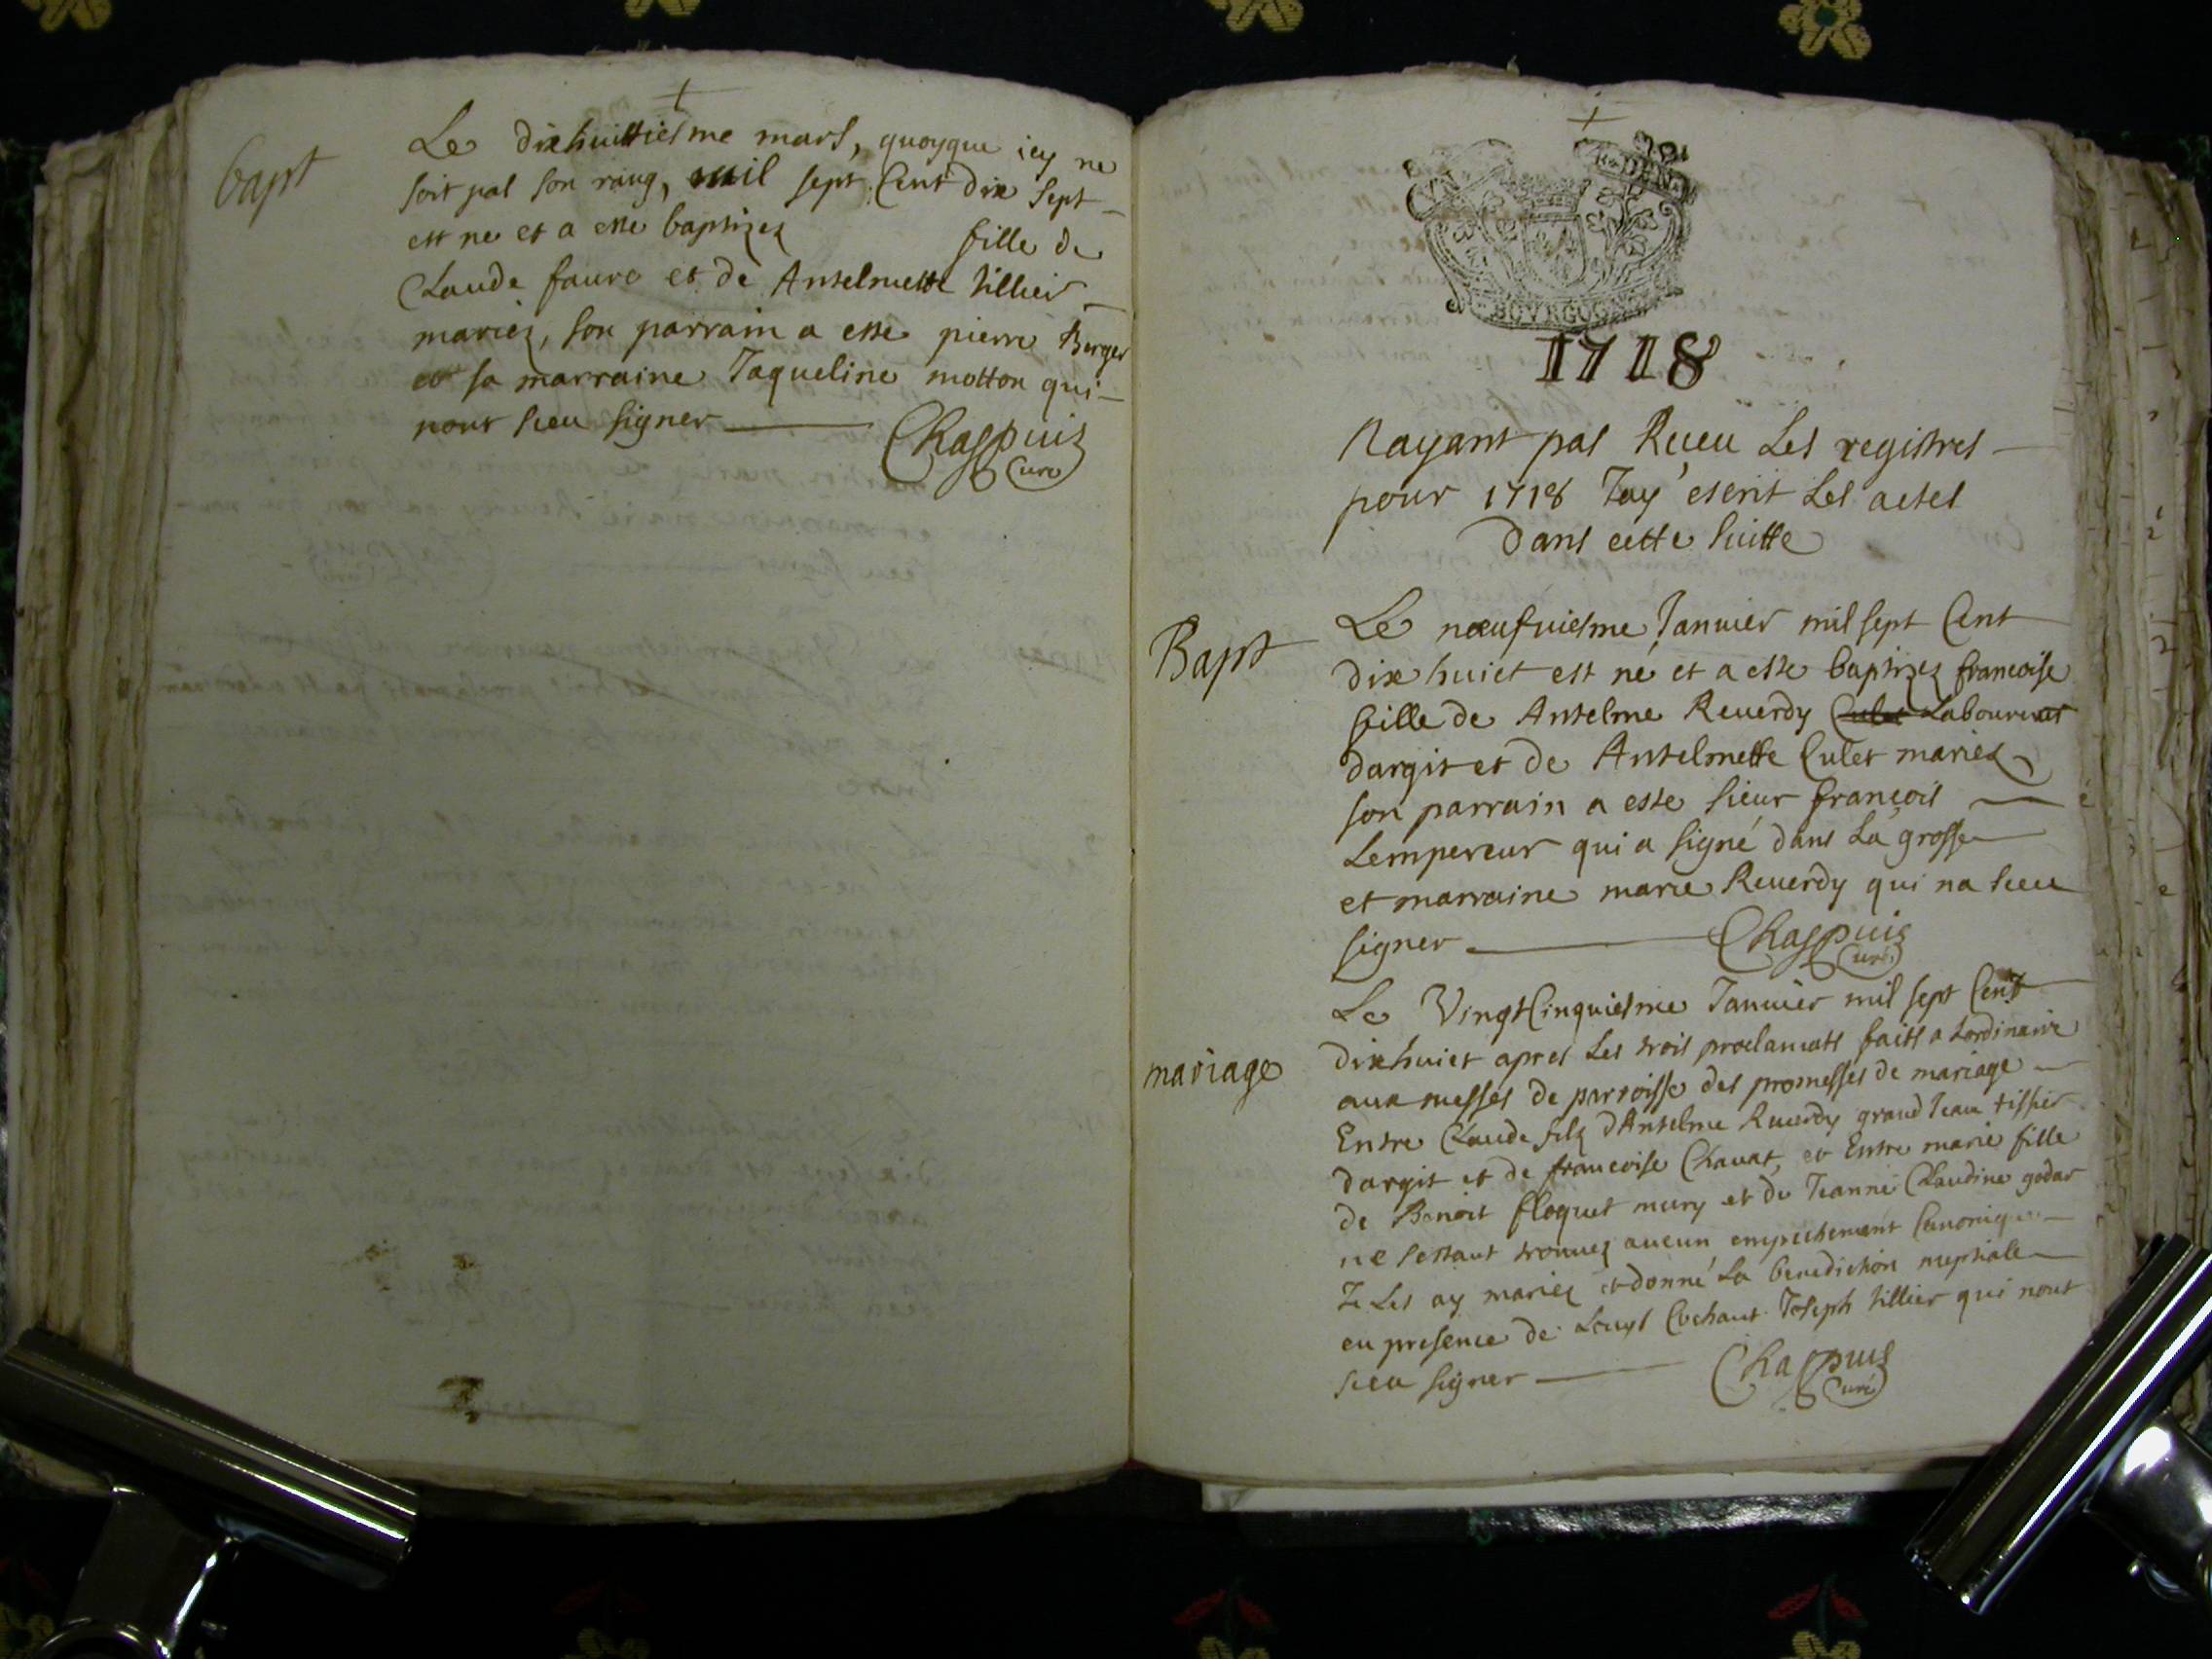 bapt
Le dixhuittiesme mars, quoyque icy ne
soit pas son rang, mil sept Cent dix sept
est ne et a este baptizez fille de
Claude faure et de Antelmette tillier
mariez, son parrain a este pierre Berger
et sa marraine Jaqueline motton qui
nont sceu signer Chaspuis
Curé
BOVRGOGNE
1718
Nayant pas Receu Les registres
pour 1718 Jay escrit Les actes
dans cette suitte
Bapt
Le neufuiesme Januier mil sept Cent
dix huict est né et a este baptizez francoise
fille de Antelme Reuerdy Culet Laboureur
dargit et de Antelmette Culet mariez
son parrain a este sieur françois
Lempereur qui a signé dans La grosse
et marraine marie Reuerdy qui na sceu
signer Chaspuis
Curé
mariage
Le Vingt Cinquiesme Januier mil sept Cent
dixhuict apres Les trois proclamats faitts a Lordinaire
aux messes de parroisse des promesses de mariage
Entre Claude filz dAntelme Reuerdy grand Jean tissier
dargit et de francoise Chauat, et Entre marie fille
de Benoit floquet mury et de Jeanne Claudine godar
ne sestant trouuez aucun empechement Canonique
Je Les ay mariez et donné La benediction nuptiale
en presence de Louys Cochaut Joseph tillier qui nont
sceu signer Chaspuis
Curé